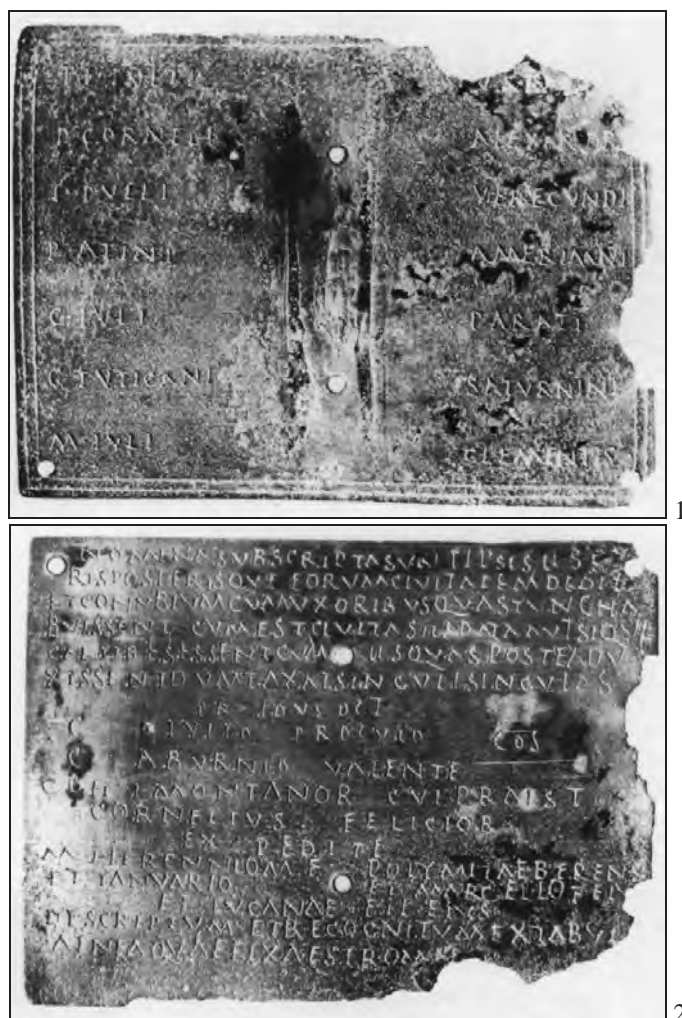 TI IVLI
P CORNELI
L PVLLI VERECVNDI
P ATINI AMERIMNI
C IVLI PARATI
C TVTICANI SATVRNINI
M IVLI CLEMENTIS
1
NOMINA SVBSCRIPTA SVNT IPSIS
RIS POSTERISQVE EORVM CIVITATEM DEDIT
ET CONVBIVM CVM VXORIBVS QVAS TVNC HA
BVISSENT CVM EST CIVITAS DATA AVT
ESSENT CVM QVAS POSTEA DV
XISSENT DVMTAXAT SINGVLI SINGVLAS
PR IDVS OCT
C PROCVLO
COS
C ABVRNIO VALENTE
COH I MONTANOR CVI PRAIST
CORNELIVS FELICIOR
EX PEDITE
M HERENNIO M F POLYMITAE BERENS
ET IANVARIO F EI MARCELLO F EI
ET LVCANAE FIL EIVS
DESCRIPTVM ET RECOGNITVM EX TABVL
QVAE FIXA EST ROMAE
2